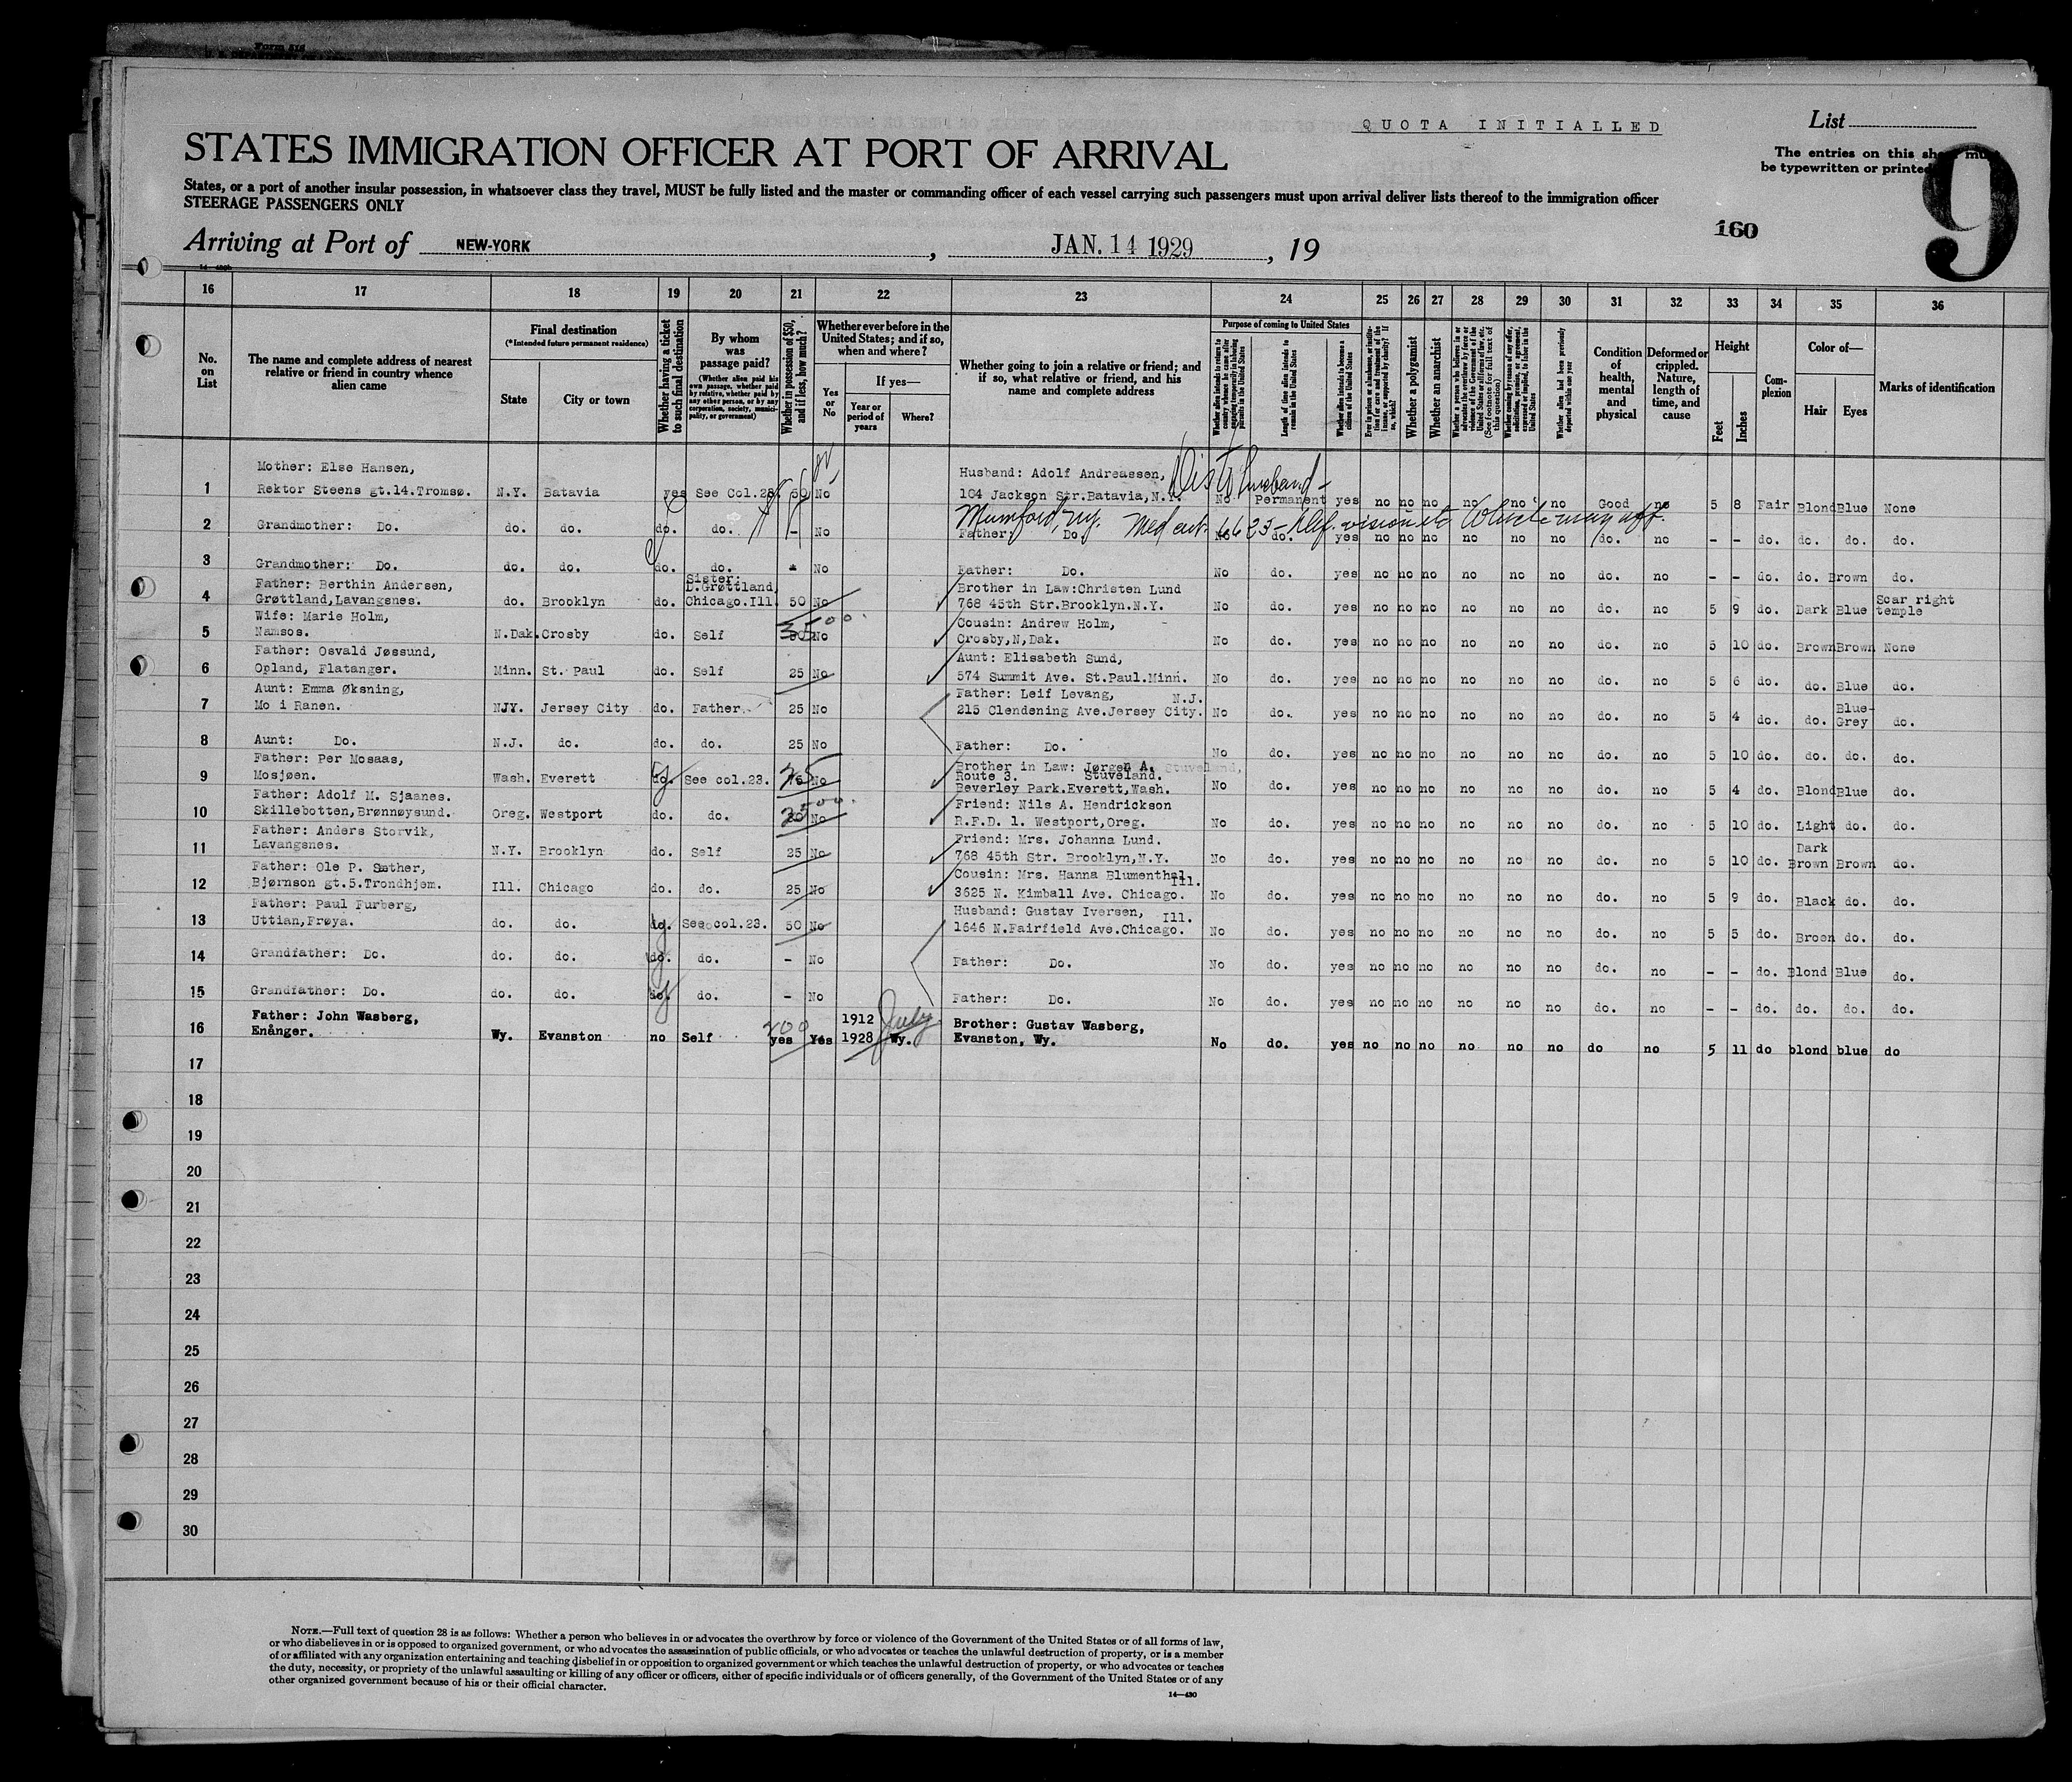 Form 515
QUOTA INITIALLED
List
STATES IMMIGRATION OFFICER AT PORT OF ARRIVAL
The entries on this sheet must
be typewritten or printed
9
States, or a port of another insular possession, in whatsoever class they travel, MUST be fully listed and the master or commanding officer of each vessel carrying such passengers must upon arrival deliver lists thereof to the immigration officer
STEERAGE PASSENGERS ONLY
160
Arriving at Port of NEW-YORK, JAN. 14 1929, 19
16 17 18 19 20 21 22 23 24 25 26 27 28 29 30 31 32 33 34 35 36
No. on List
The name and complete address of nearest relative or friend in country whence alien came
Final destination
(*Intended future permanent residence)
State
City or town
Whether having a ticket to such final destination
By whom was passage paid?
(Whether alien paid his own passage, whether paid by relative, whether paid by any other person, or by any corporation, society, municipality, or government)
Whether in possession of $50, and if less, how much?
Whether ever before in the United States; and if so, when and where?
Yes or No
If yes—
Year or period of years
Where?
Whether going to join a relative or friend; and if so, what relative or friend, and his name and complete address
Purpose of coming to United States
Length of time alien intends to remain in the United States
Whether alien intends to become a citizen of the United States
Whether a polygamist
Whether an anarchist
Whether alien had been previously deported within one year
Condition of health, mental and physical
Deformed or crippled. Nature, length of time, and cause
Height
Feet
Inches
Complexion
Color of—
Hair
Eyes
Marks of identification
Mother: Else Hansen, Husband: Adolf Andreassen, Dis to husband -
1 Rektor Steens gt.14.Tromsø. N.Y. Batavia yes See Col.23. 50 No 104 Jackson Str.Batavia,N.Y. No Permanent yes no no no no no no Good no 5 8 Fair Blond Blue None
Mumford, NY. Med cert. 6623 - Def. vision etc which may aff.
2 Grandmother: Do. do. do. do. do. - No Father: Do. No do. yes no no no no no no do. no - - do. do. do. do.
3 Grandmother: Do. do. do. do. do. No Father: Do. No do. yes no no no no no no do. no - - do. do. Brown do.
Father: Berthin Andersen, Sister: D.Grøttland, Brother in Law:Christen Lund
4 Grøttland,Lavangsnes. do. Brooklyn do. Chicago.Ill. 50 No 768 45th Str.Brooklyn.N.Y. No do. yes no no no no no no do. no 5 9 do. Dark Blue Scar right temple
Wife: Marie Holm, 3500. Cousin: Andrew Holm,
5 Namsos. N.Dak. Crosby do. Self No Crosby,N,Dak. No do. yes no no no no no no do. no 5 10 do. Brown Brown None
Father: Osvald Jøssund, Aunt: Elisabeth Sund,
6 Opland, Flatanger. Minn. St. Paul do. Self 25 No 574 Summit Ave. St.Paul.Minn. No do. yes no no no no no no do. no 5 6 do. do. Blue do.
Aunt: Emma Øksning, Father: Leif Levang, N.J.
7 Mo i Ranen. NJY. Jersey City do. Father. 25 No 215 Clendening Ave.Jersey City. No do. yes no no no no no no do. no 5 4 do. do. Blue-Grey do.
8 Aunt: Do. N.J. do. do. do. 25 No Father: Do. No do. yes no no no no no no do. no 5 10 do. do. do. do.
Father: Per Mosaas, Brother in Law: Jørgen A. Stuveland,
9 Mosjøen. Wash. Everett do. See col.23. 25 No Route 3. Stuveland.
Beverley Park.Everett,Wash. No do. yes no no no no no no do. no 5 4 do. Blond Blue do.
Father: Adolf M. Sjaanes. 2500. Friend: Nils A. Hendrickson
10 Skillebotten,Brønnøysund. Oreg. Westport do. do. No R.F.D. 1. Westport,Oreg. No do. yes no no no no no no do. no 5 10 do. Light do. do.
Father: Anders Storvik, Friend: Mrs. Johanna Lund.
11 Lavangsnes. N.Y. Brooklyn do. Self 25 No 768 45th Str. Brooklyn,N.Y. No do. yes no no no no no no do. no 5 10 do. Dark Brown Brown do.
Father: Ole P. Sæther, Cousin: Mrs. Hanna Blumenthal Ill.
12 Bjørnson gt.5.Trondhjem. Ill. Chicago do. do. 25 No 3625 N. Kimball Ave. Chicago. No do. yes no no no no no no do. no 5 9 do. Black do. do.
Father: Paul Furberg, Husband: Gustav Iversen, Ill.
13 Uttian,Frøya. do. do. do. See col.23. 50 No 1646 N.Fairfield Ave.Chicago. No do. yes no no no no no no do. no 5 5 do. Broen do. do.
14 Grandfather: Do. do. do. do. do. - No Father: Do. No do. yes no no no no no no do. no - - do. Blond Blue do.
15 Grandfather: Do. do. do. do. do. - No Father: Do. No do. yes no no no no no no do. no - - do. do. do. do.
Father: John Wasberg, 200 1912 July Brother: Gustav Wasberg,
16 Enånger. Wy. Evanston no Self yes Yes 1928 Wy. Evanston, Wy. No do. yes no no no no no no do no 5 11 do blond blue do
17
18
19
20
21
22
23
24
25
26
27
28
29
30
NOTE.—Full text of question 28 is as follows: Whether a person who believes in or advocates the overthrow by force or violence of the Government of the United States or of all forms of law,
or who disbelieves in or is opposed to organized government, or who advocates the assassination of public officials, or who advocates or teaches the unlawful destruction of property, or is a member
of or affiliated with any organization entertaining and teaching disbelief in or opposition to organized government or which teaches the unlawful destruction of property, or who advocates or teaches
the duty, necessity, or propriety of the unlawful assaulting or killing of any officer or officers, either of specific individuals or of officers generally, of the Government of the United States or of any
other organized government because of his or their official character.
14—430